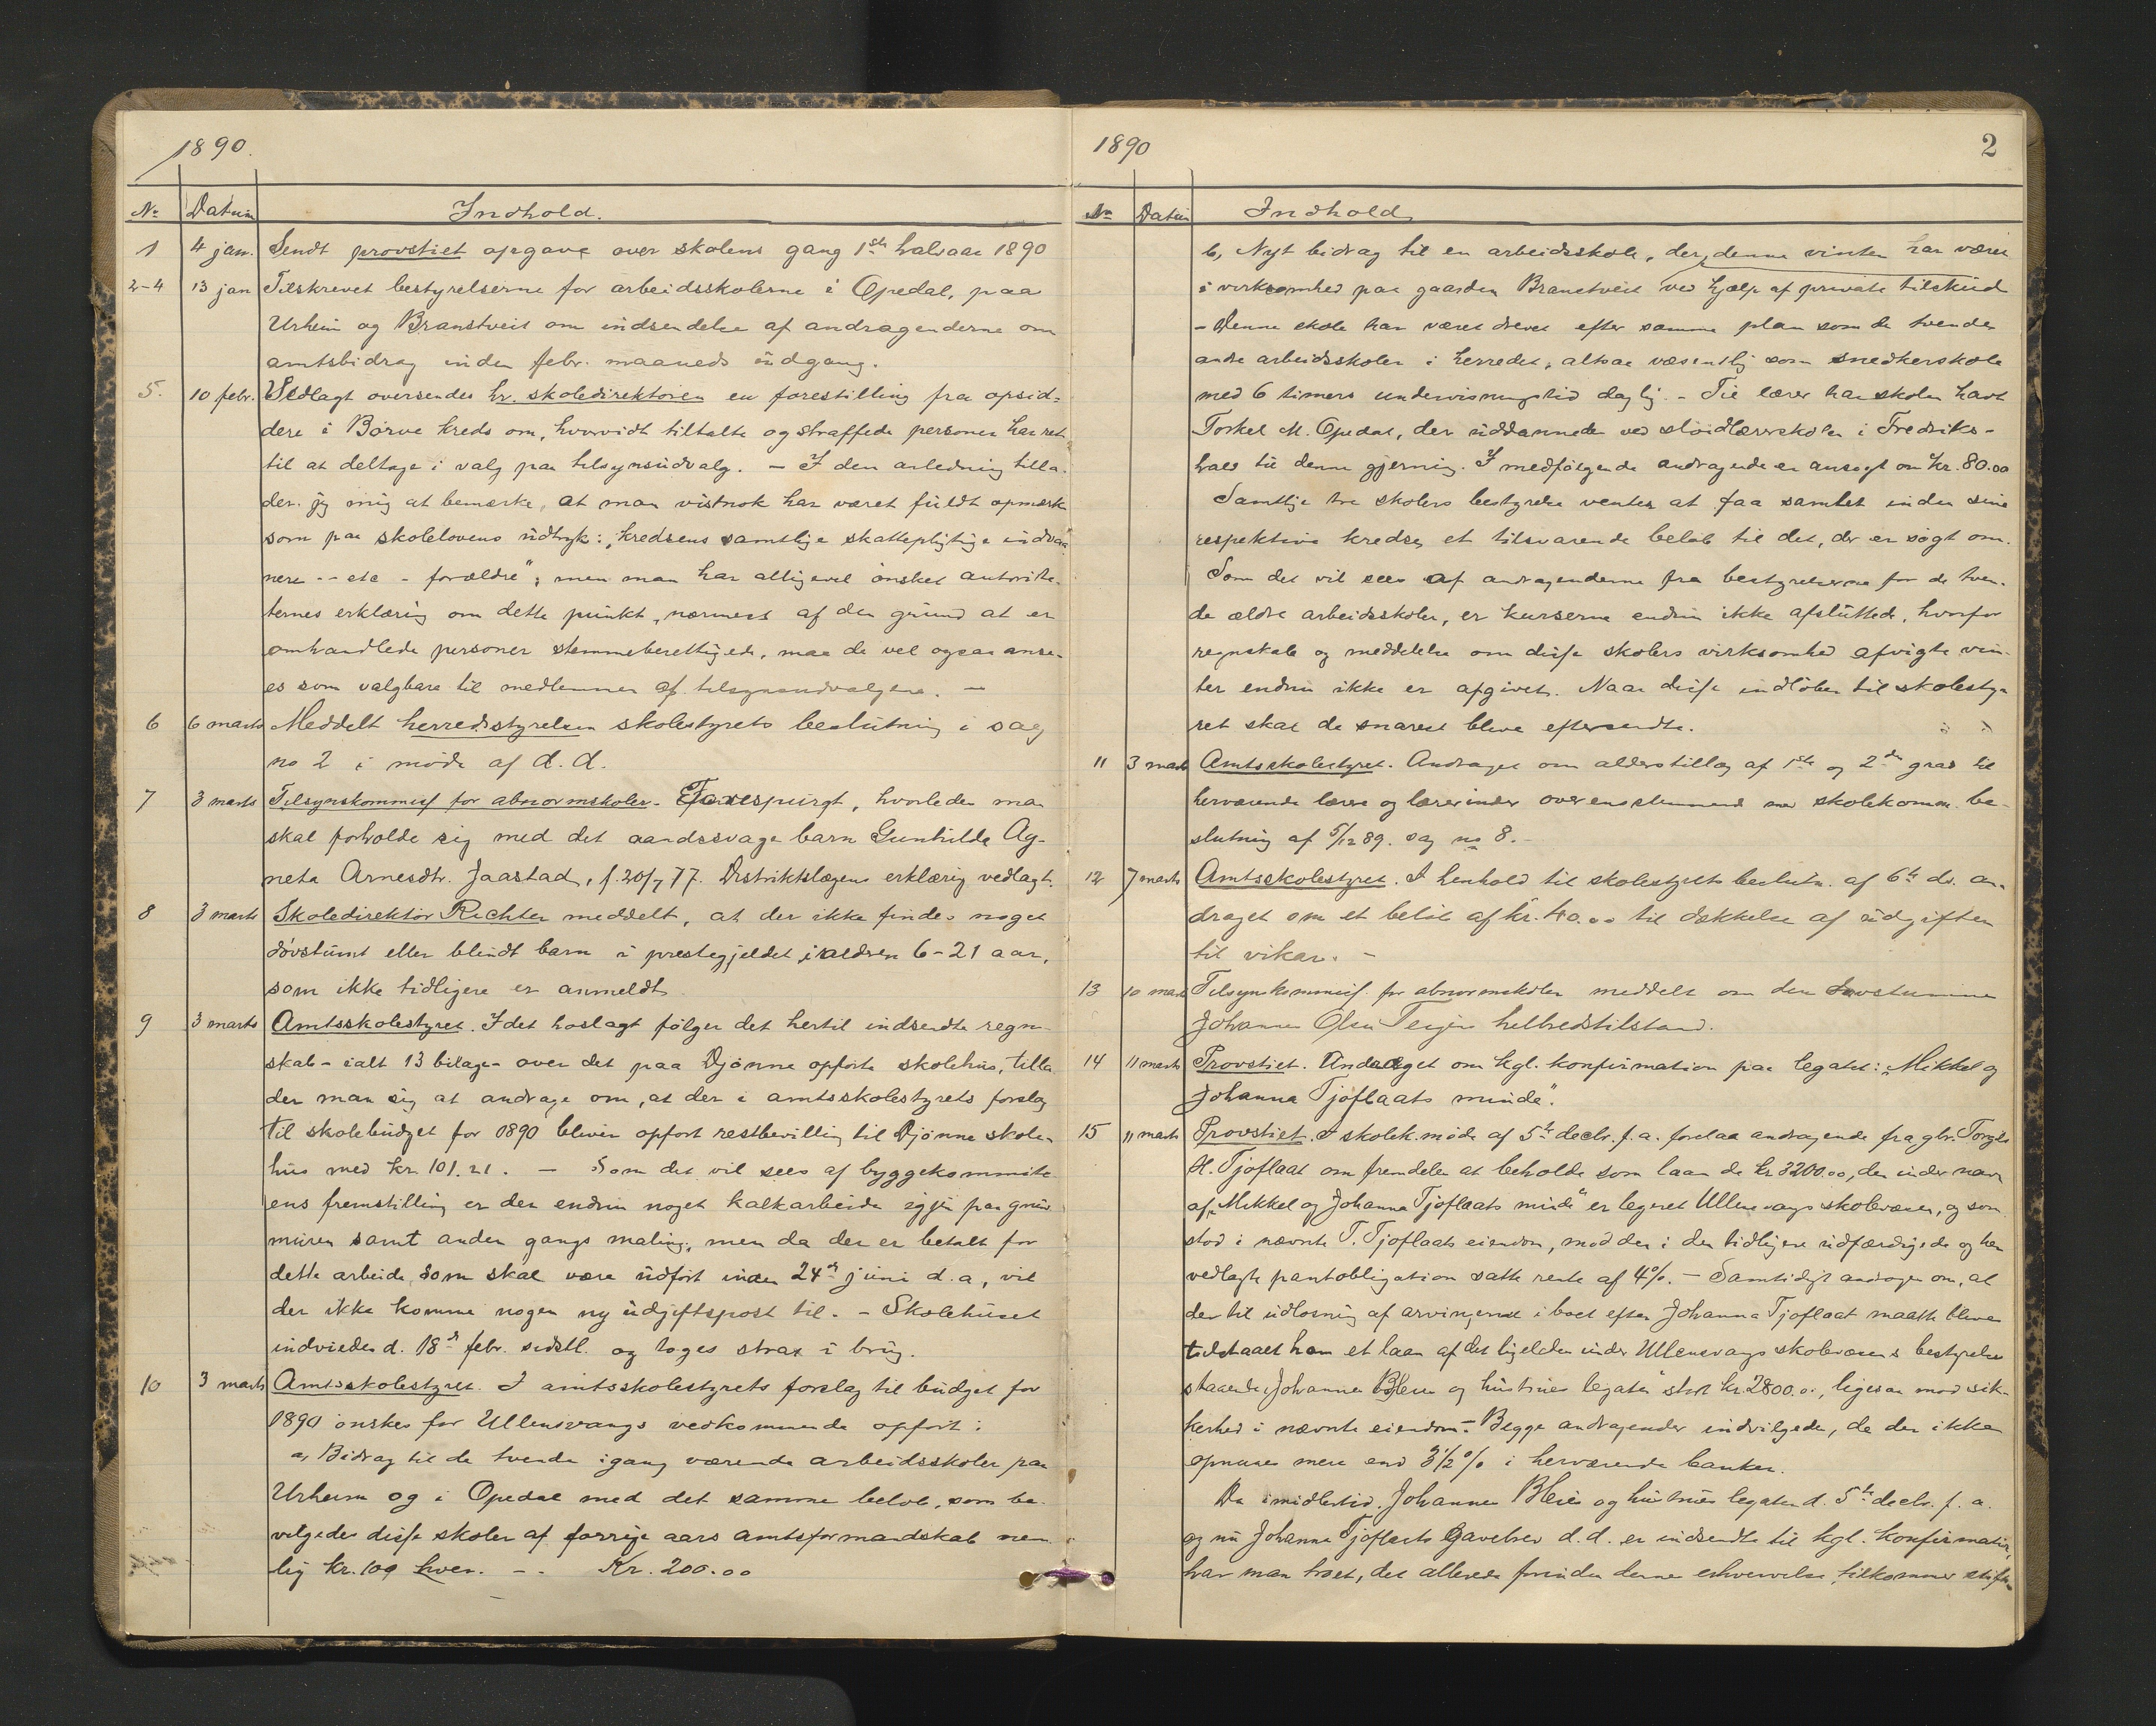 1890.
No Datum Indhold.
1 4 jan. Sendt provstiet opgave over skolens gang 1ste halvaar 1890
2-4 13 jan Tilskrevet bestyrelserne for arbeidsskolerne i Opedal, paa
Urheim og Branstveit om indsendelse af andragenderne om
amtsbidrag inden febr. maaneds udgang.
5. 10 febr. Vedlagt oversendes hr. skoledirektøren en forestilling fra opsid=
dere i Børve kreds om, hvorvidt tiltalte og straffede personer har ret
til at deltage i valg paa tilsynsudvalg. – I den anledning tilla-
der jeg mig at bemærke, at man vistnok har været fuldt opmærk
som paa skolelovens udtryk: "kredsens samtlige skattepligtige indvaa
nere -- etc - forældre"; men man har alligevel ønsket autorite-
ternes erklæring om dette punkt, nærmest af den grund at er
omhandlede personer stemmeberettigede, maa de vel ogsaa anse-
es som valgbare til medlemmer af tilsynsudvalgene. –
6 6 marts Meddelt herredsstyrelsen skolestyrets beslutning i sag
no 2 i møde af d. d.
7 3 marts Tilsynskommiss for abnormskoler. Forespurgt, hvorledes man
skal forholde sig med det aandssvage barn Gunhilde Ag-
neta Arnesdtr. Jaastad, f. 20/7 77. Distriktslægens erklæring vedlagt.
8 3 marts Skoledirektør Richter meddelt, at der ikke findes noget
døvstumt eller blindt barn i prestegjeldet i alderen 6-21 aar,
som ikke tidligere er anmeldt
9 3 marts Amtsskolestyret. I det hoslagt følger det hertil indsendte regn-
skab - ialt 13 bilage - over det paa Djønne opførte skolehus, tilla
der man sig at andrage om, at der i amtsskolestyrets forslag
til skolebudget for 1890 bliver opført restbevilling til Djønne skole-
hus med kr. 101.21. – Som det vil sees af byggekommite
ens fremstilling er der endnu noget kalkarbeide igjen paa grund
muren samt anden gangs maling; men da der er betalt for
dette arbeide, som skal være udført inden 24de juni d. a, vil
der ikke komme nogen ny udgiftspost til. – Skolehuset
indviedes d. 18de febr. sidstl. og toges strax i brug.
10 3 marts Amtsskolestyret. I amtsskolestyrets forslag til budget for
1890 ønskes for Ullensvangs vedkommende opført:
a, Bidrag til de tvende igang værende arbeidsskoler paa
Urheim og i Opedal med det samme beløb, som be-
vilgedes disse skoler af forrige aars amtsformandskab nem
lig kr. 100 hver. – . Kr. 200.00
1890 2
No Datum Indhold
b, Nyt bidrag til en arbeidsskole, der denne vinter har været
i virksomhed paa gaarden Branstveit ved hjælp af private tilskud
- Denne skole har været drevet efter samme plan som de tvende
andre arbeidsskoler i herredet, altsaa væsentlig som snedkerskole
med 6 timers undervisningstid daglig. – Til lærer har skolen havt
Torkel M. Opedal, der uddannedes ved sløidlærerskolen i Fredriks-
hald til denne gjerning. I medfølgende andragende er ansøgt om kr. 80.00
Samtlige tre skolers bestyrelse venter at faa samlet inden sine
respektive kredse et tilsvarende beløb til det, der er søgt om.
Som det vil sees af andragenderne fra bestyrelserne for de tven-
de ældre arbeidsskoler, er kurserne endnu ikke afsluttede, hvorfor
regnskab og meddelelse om disse skolers virksomhed afvigte vin-
ter endnu ikke er afgivet. Naar disse indløber til skolesty-
ret skal de snarest blive eftersendte.
11 3 marts Amtsskolestyret. Andraget om alderstillæg af 1ste og 2den grad til
herværende lærere og lærerinder overensstemmende med skolekomm. be-
slutning af 5/12 89. sag no 8. –
12 7 marts Amtsskolestyret. I henhold til skolestyrets beslutn. af 6te ds. an-
draget om et beløb af kr. 40.00 til dækkelse af udgiften
til vikar. –
13 10 marts Tilsynskommiss. for abnormskoler meddelt om den døvstumme
Johannes Olsen Teigens helbredstilstand.
14 11 marts Provstiet. Andraget om kgl. konfirmation paa legatet: "Mikkel og
Johanna Tjoflaats minde".
15 11 marts Provstiet. I skolek.møde af 5te decbr. f. a. forelaa andragende fra gbr. Torgils
H. Tjoflaat om fremdeles at beholde som laan de kr 3200.00, der under navn
af "Mikkel og Johanna Tjoflaats minde" er legeret Ullensvangs skolevæsen, og som
stod i nævnte T. Tjoflaats eiendom, mod den i den tidligere udfærdigede og her
vedlagte pantobligation satte rente af 4%. – Samtidigt androges om, at
der til udløsning af arvingerne i boet efter Johanna Tjoflaat maatte blive
tilstaaet ham et laan af det ligeledes under Ullensvangs skolevæsens bestyrelse
staaende "Johannes Bleies og hustrues legater" stort kr. 2800.00, ligesaa mod sik-
kerhed i nævnte eiendom. – Begge andragender indvilgedes, da der ikke
opnaaes mere end 3 1/2 % i herværende banker.
Da imidlertid Johannes Bleies og hustrues legater d. 5te decbr. f. a.
og nu Johanna Tjoflaats Gavebrev d. d. er indsendte til kgl. konfirmation,
har man troet, det allerede forinden denne erhvervelse tilkommer stifts